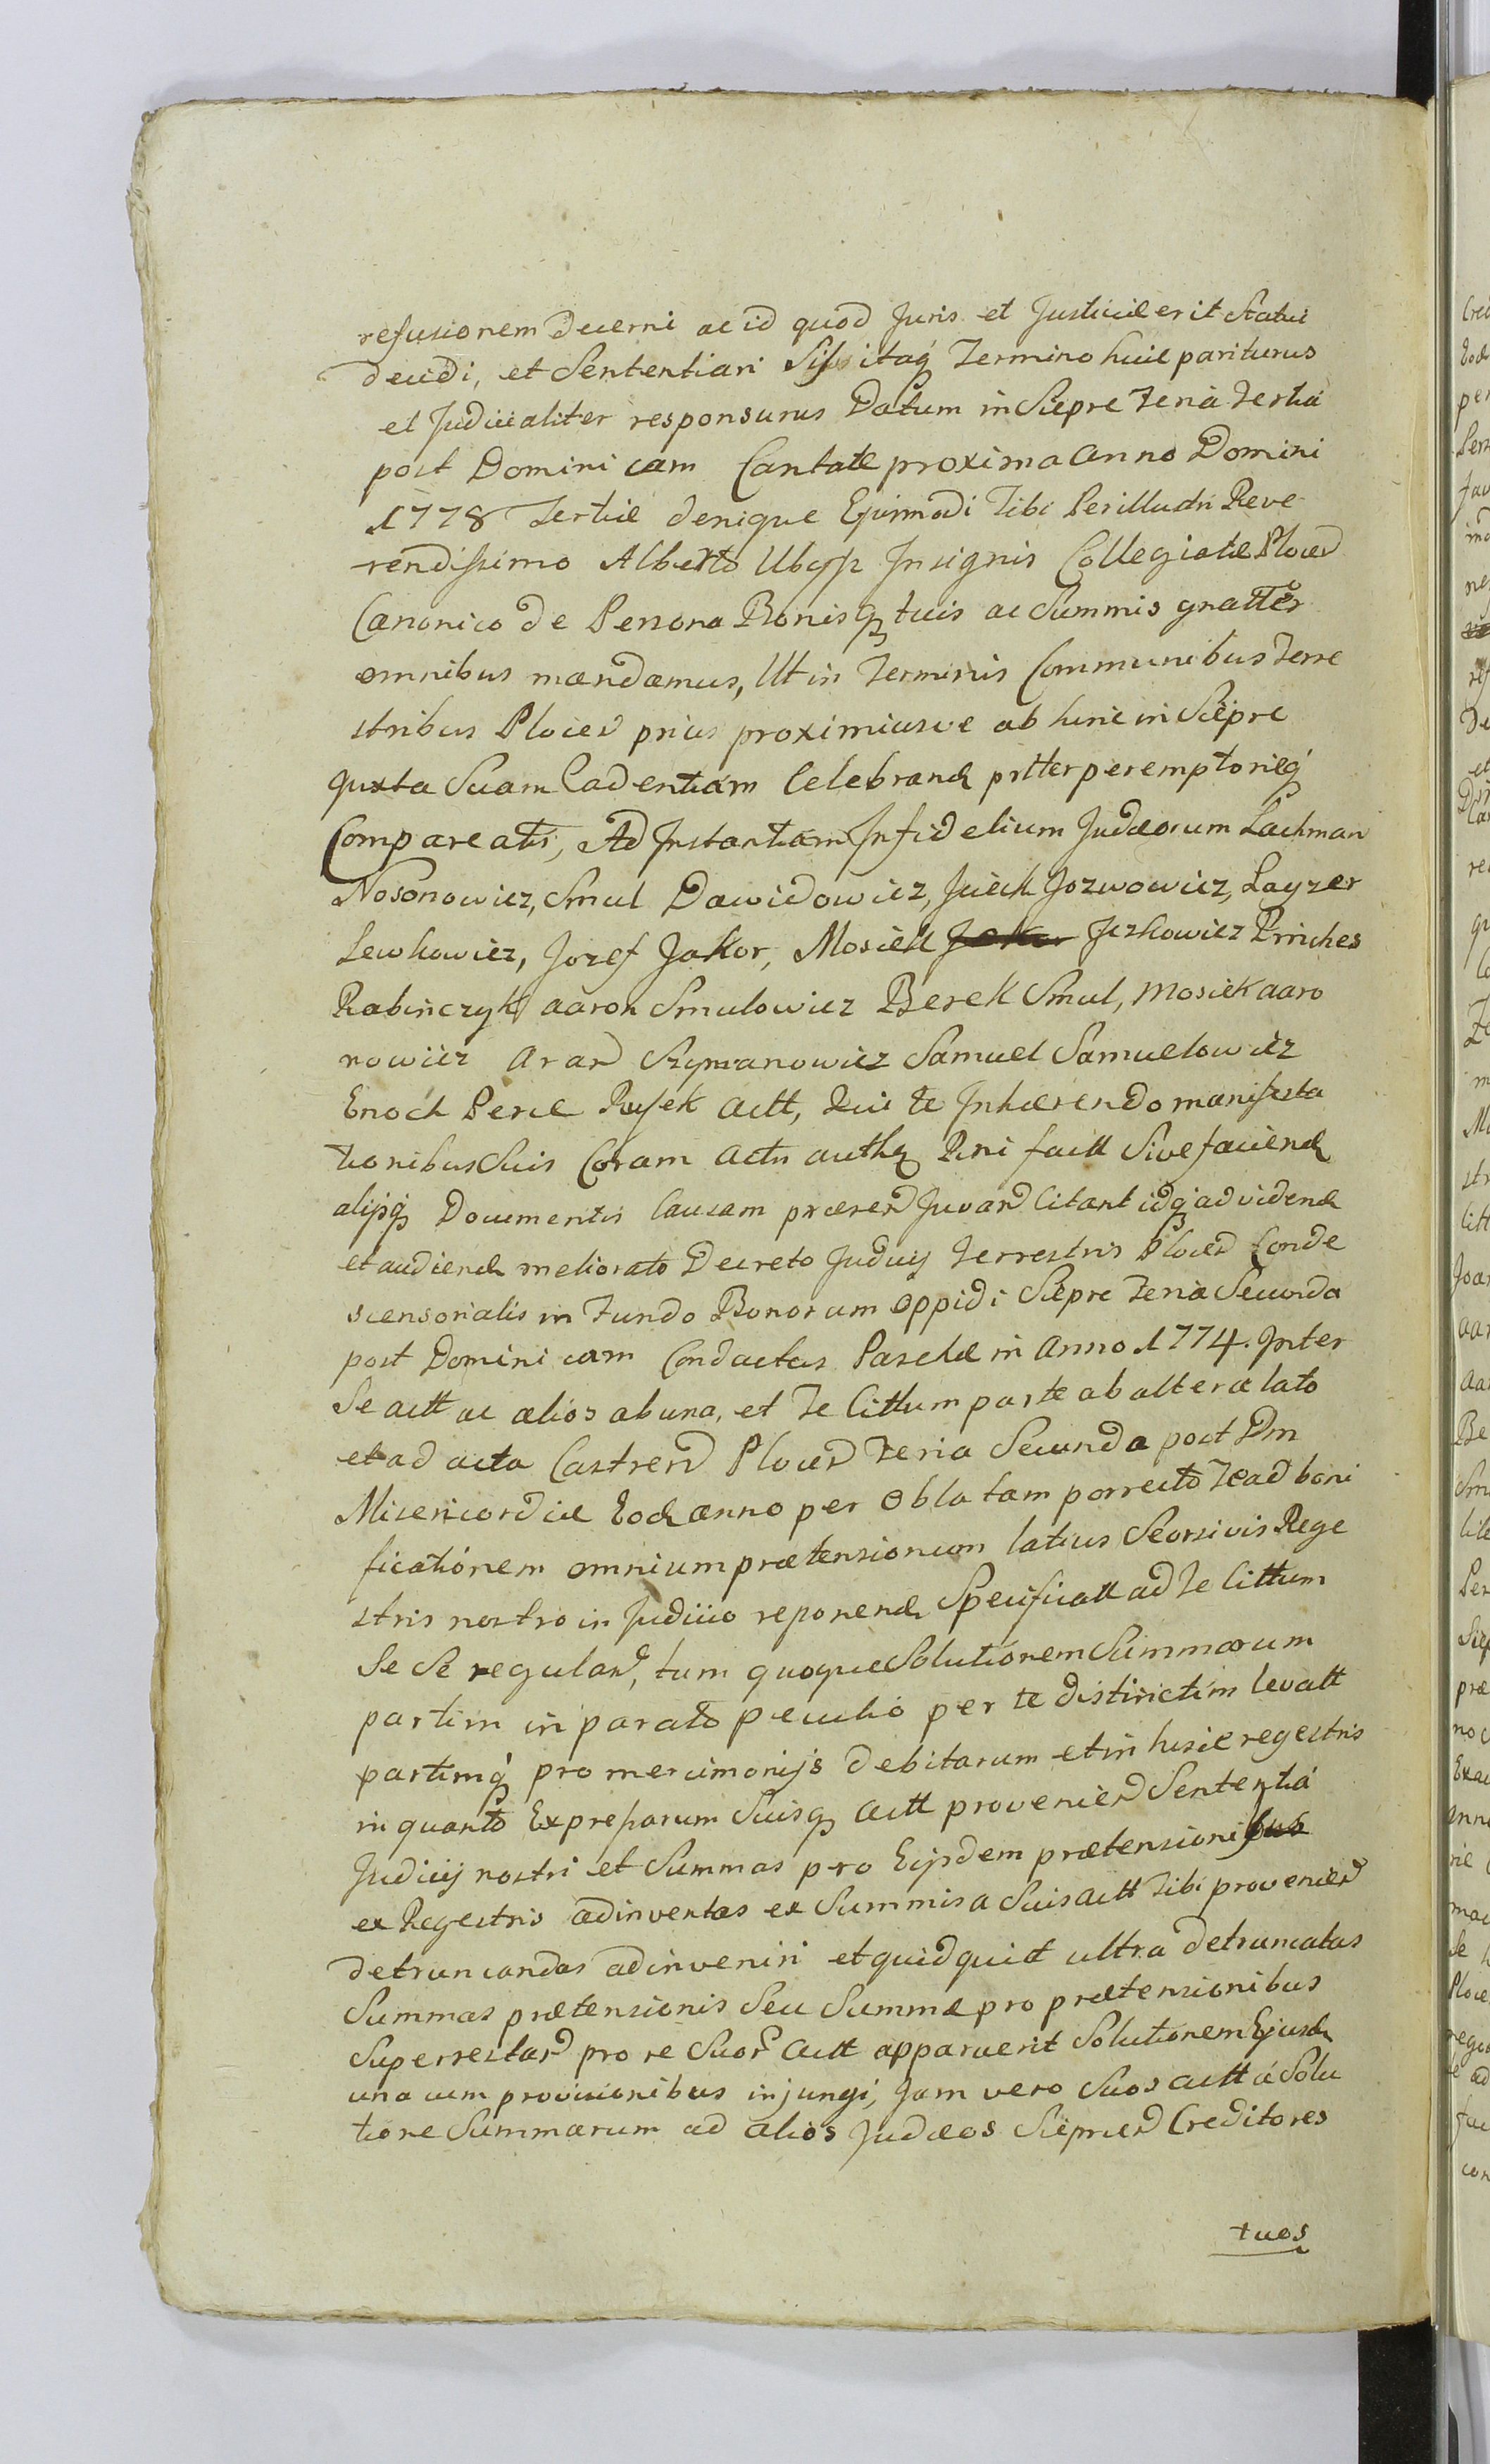 refusionem decerni ac id quod Juris et Justitiæ erit Statui
decidi, et Sententiari Sis itaq Termino huic pariturus
et Judicialiter responsurus Datum in Sierpc Feria Tertia
post Dominicam Cantate proxima Anno Domini
1778 Tertiæ denique Ejusmodi Tibi Perillustri Reve
rendissimo Alberto Ubysz Insignis Collegiatæ Plocen
Canonico de Persona Bonisq tuis ac Summis gnatter
omnibus mandamus, Ut in Terminis Communibus Terre
stribus Plocen prius proximiusve ab hinc in Sierpc
juxta Suam Cadentiam Celebrand pntter peremptorieq
Compareatis, Ad Instantiam Infidelium Judæorum Lachman
Nosonowicz, Smul Dawidowicz, Jciek Jozwowicz, Layzer
Lewkowicz, Jozef Jakor, Mosiek Jzkowicz Prinches
Rabinczyk Aaron Smulowicz Berek Smul, Mosiek Aaro
nowicz Aran Szymanowicz Samuel Samuelowicz
Enoch Perec Rusek Actt, Qui te Inhærendo manifesta
tionibus Suis Coram Actis authq Rni factt Sive faciend
alijsq Documentis Causam præsen Juvan Citant idq ad vidend
et audiend meliorato Decreto Judicij Terrestris Plocen Conde
scensorialis in Fundo Bonorum Oppidi Sierpc Feria Secunda
post Dominicam Conductus Paschæ in Anno 1774. Inter
Se actt ac alios ab una, et Te Cittum parte ab altera lato
et ad acta Castren Plocen Feria Secunda post Dm
Misericordiæ Eod anno per Oblatam porrecto Te ad boni
ficationem omnium prætensionum latius Seorsivis Rege
stris nostro in Judicio reponend Specificatt ad Te Cittum
Se Se regulan, tum quoque Solutionem Summarum
partim in parato peculio per te distinctim levatt
partimq pro mercimonijs debitarum et in hisce regestris
in quanto Expressarum Suisq Actt provenien Sententia
Judicij nostri et Summas pro Eijsdem prætensionibus
ex Regestris adinventas ex Summis a Suis Actt Tibi provenien
detruncandas adinveniri et quidquid ultra detruncatas
Summas prætensionis Seu Summæ pro prætensionibus
Superrestan pro re Suor Actt apparuerit Solutionem Ejusd
una cum provisionibus injungi, Jam vero Suos Actt á Solu
tione Summarum ad alios Judæos Sierpcen Creditores
tuos